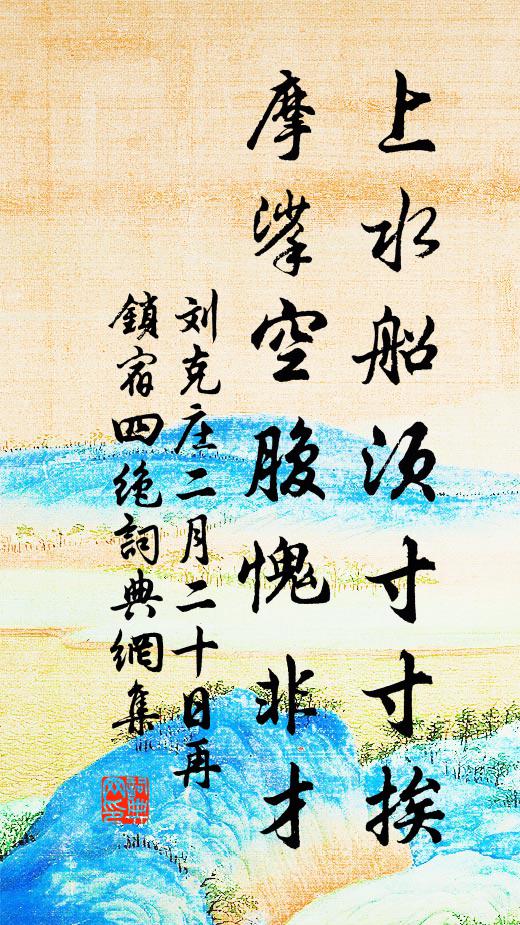 上水船须寸寸挨
摩挲空腹愧非才
刘克庄二月二十日再
鎖宿四绝詞典網集